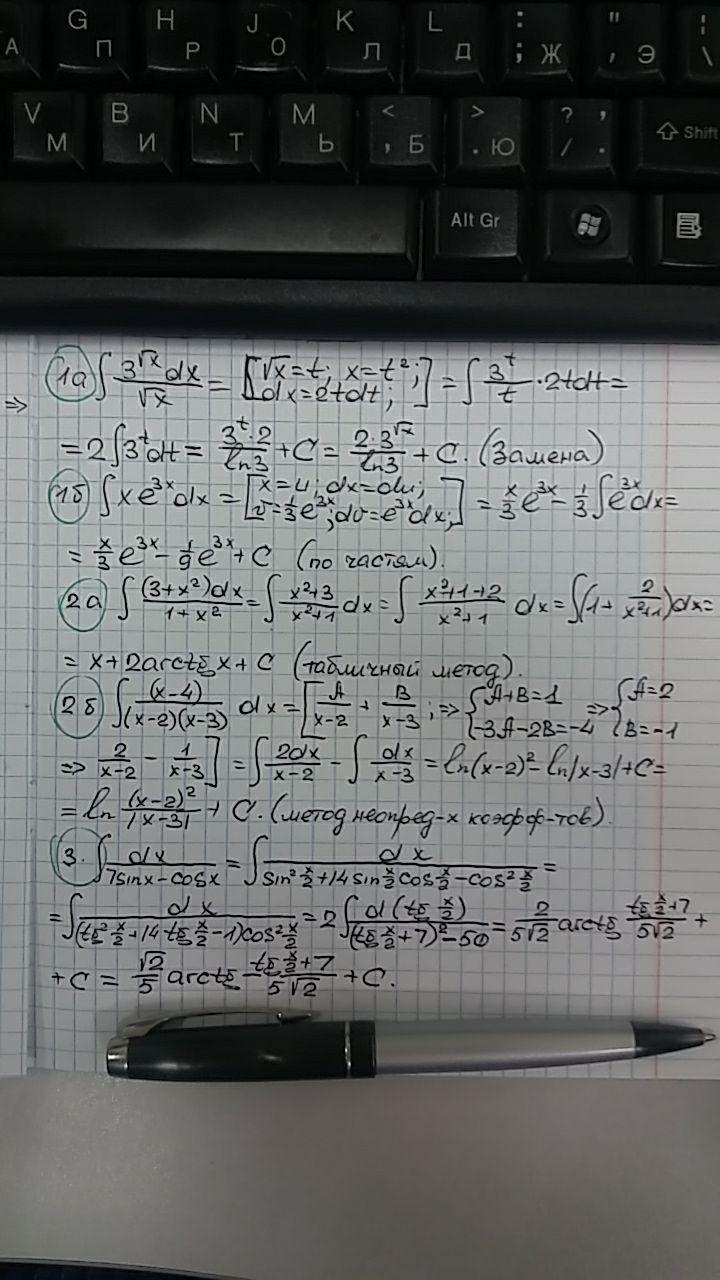 G H J K L : " ¦
А П Р О Л ; Ж Д , Э \
V B N M < > ? , ⇧ Shift
М И Т Ь , Б . Ю / .
Alt Gr
1а ∫ 3^√x dx / √x = [√x = t; x = t²; dx = 2tdt;] = ∫ 3^t / t · 2tdt =
⇒
= 2∫3^t dt = 3^t·2 / ln3 + C = 2·3^√x / ln3 + C. (Замена)
1б ∫ x e^3x dx = [x = u; dx = du; v = 1/3 e^3x; dv = e^3x dx;] = x/3 e^3x − 1/3 ∫ e^3x dx =
= x/3 e^3x − 1/9 e^3x + C (по частям).
2а ∫ (3+x²)dx / 1+x² = ∫ x²+3 / x²+1 dx = ∫ x²+1+2 / x²+1 dx = ∫(1 + 2 / x²+1)dx =
= x + 2arctg x + C (табличный метод).
2б ∫ (x−4) / (x−2)(x−3) dx = [A / x−2 + B / x−3; ⇒ {A+B=1 −3A−2B=−4 ⇒ {A=2 B=−1
⇒ 2 / x−2 − 1 / x−3] = ∫ 2dx / x−2 − ∫ dx / x−3 = ln(x−2)² − ln|x−3| + C =
= ln (x−2)² / |x−3| + C. (метод неопред-х коэфф-тов).
3. ∫ dx / 7sinx − cosx = ∫ dx / sin² x/2 + 14 sin x/2 cos x/2 − cos² x/2 =
= ∫ dx / (tg² x/2 + 14 tg x/2 − 1)cos² x/2 = 2∫ d(tg x/2) / (tg x/2 + 7)² − 50 = 2 / 5√2 arctg tg x/2 + 7 / 5√2 +
+ C = √2 / 5 arctg tg x/2 + 7 / 5√2 + C.